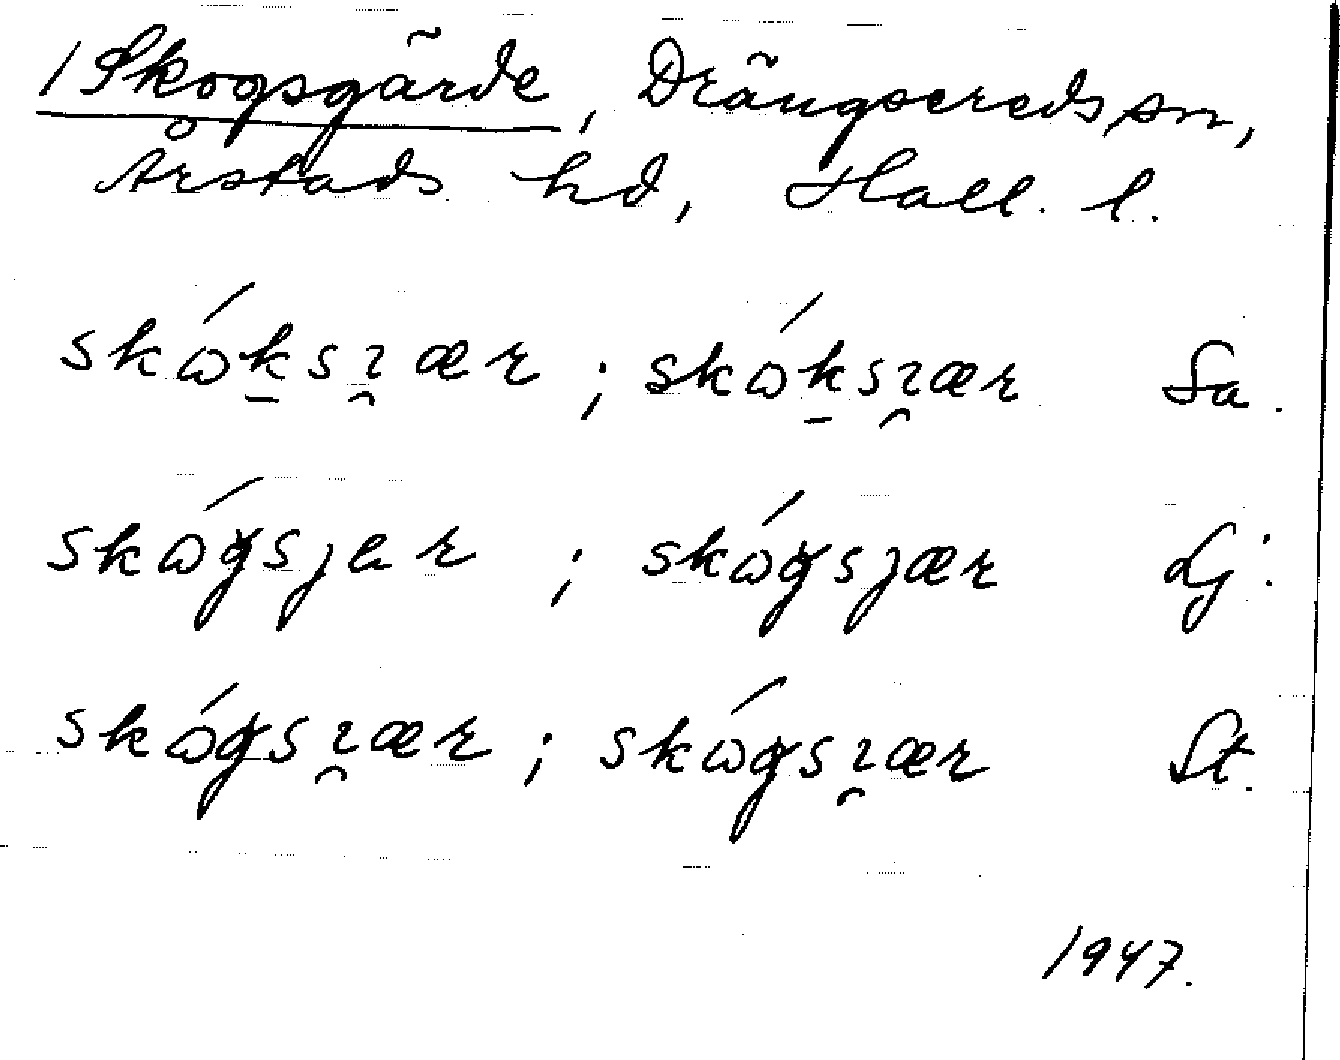 / Skogsgärde, Drängsereds sn,
Årstads hd, Hall. l.
skώk̠sɿ̯ær ; skώk̠sɿ̯ær Sa.
skώgsjar ; skώgsjær Lj.
skώgsɿ̯ær ; skώgsɿ̯ær St.
1947.